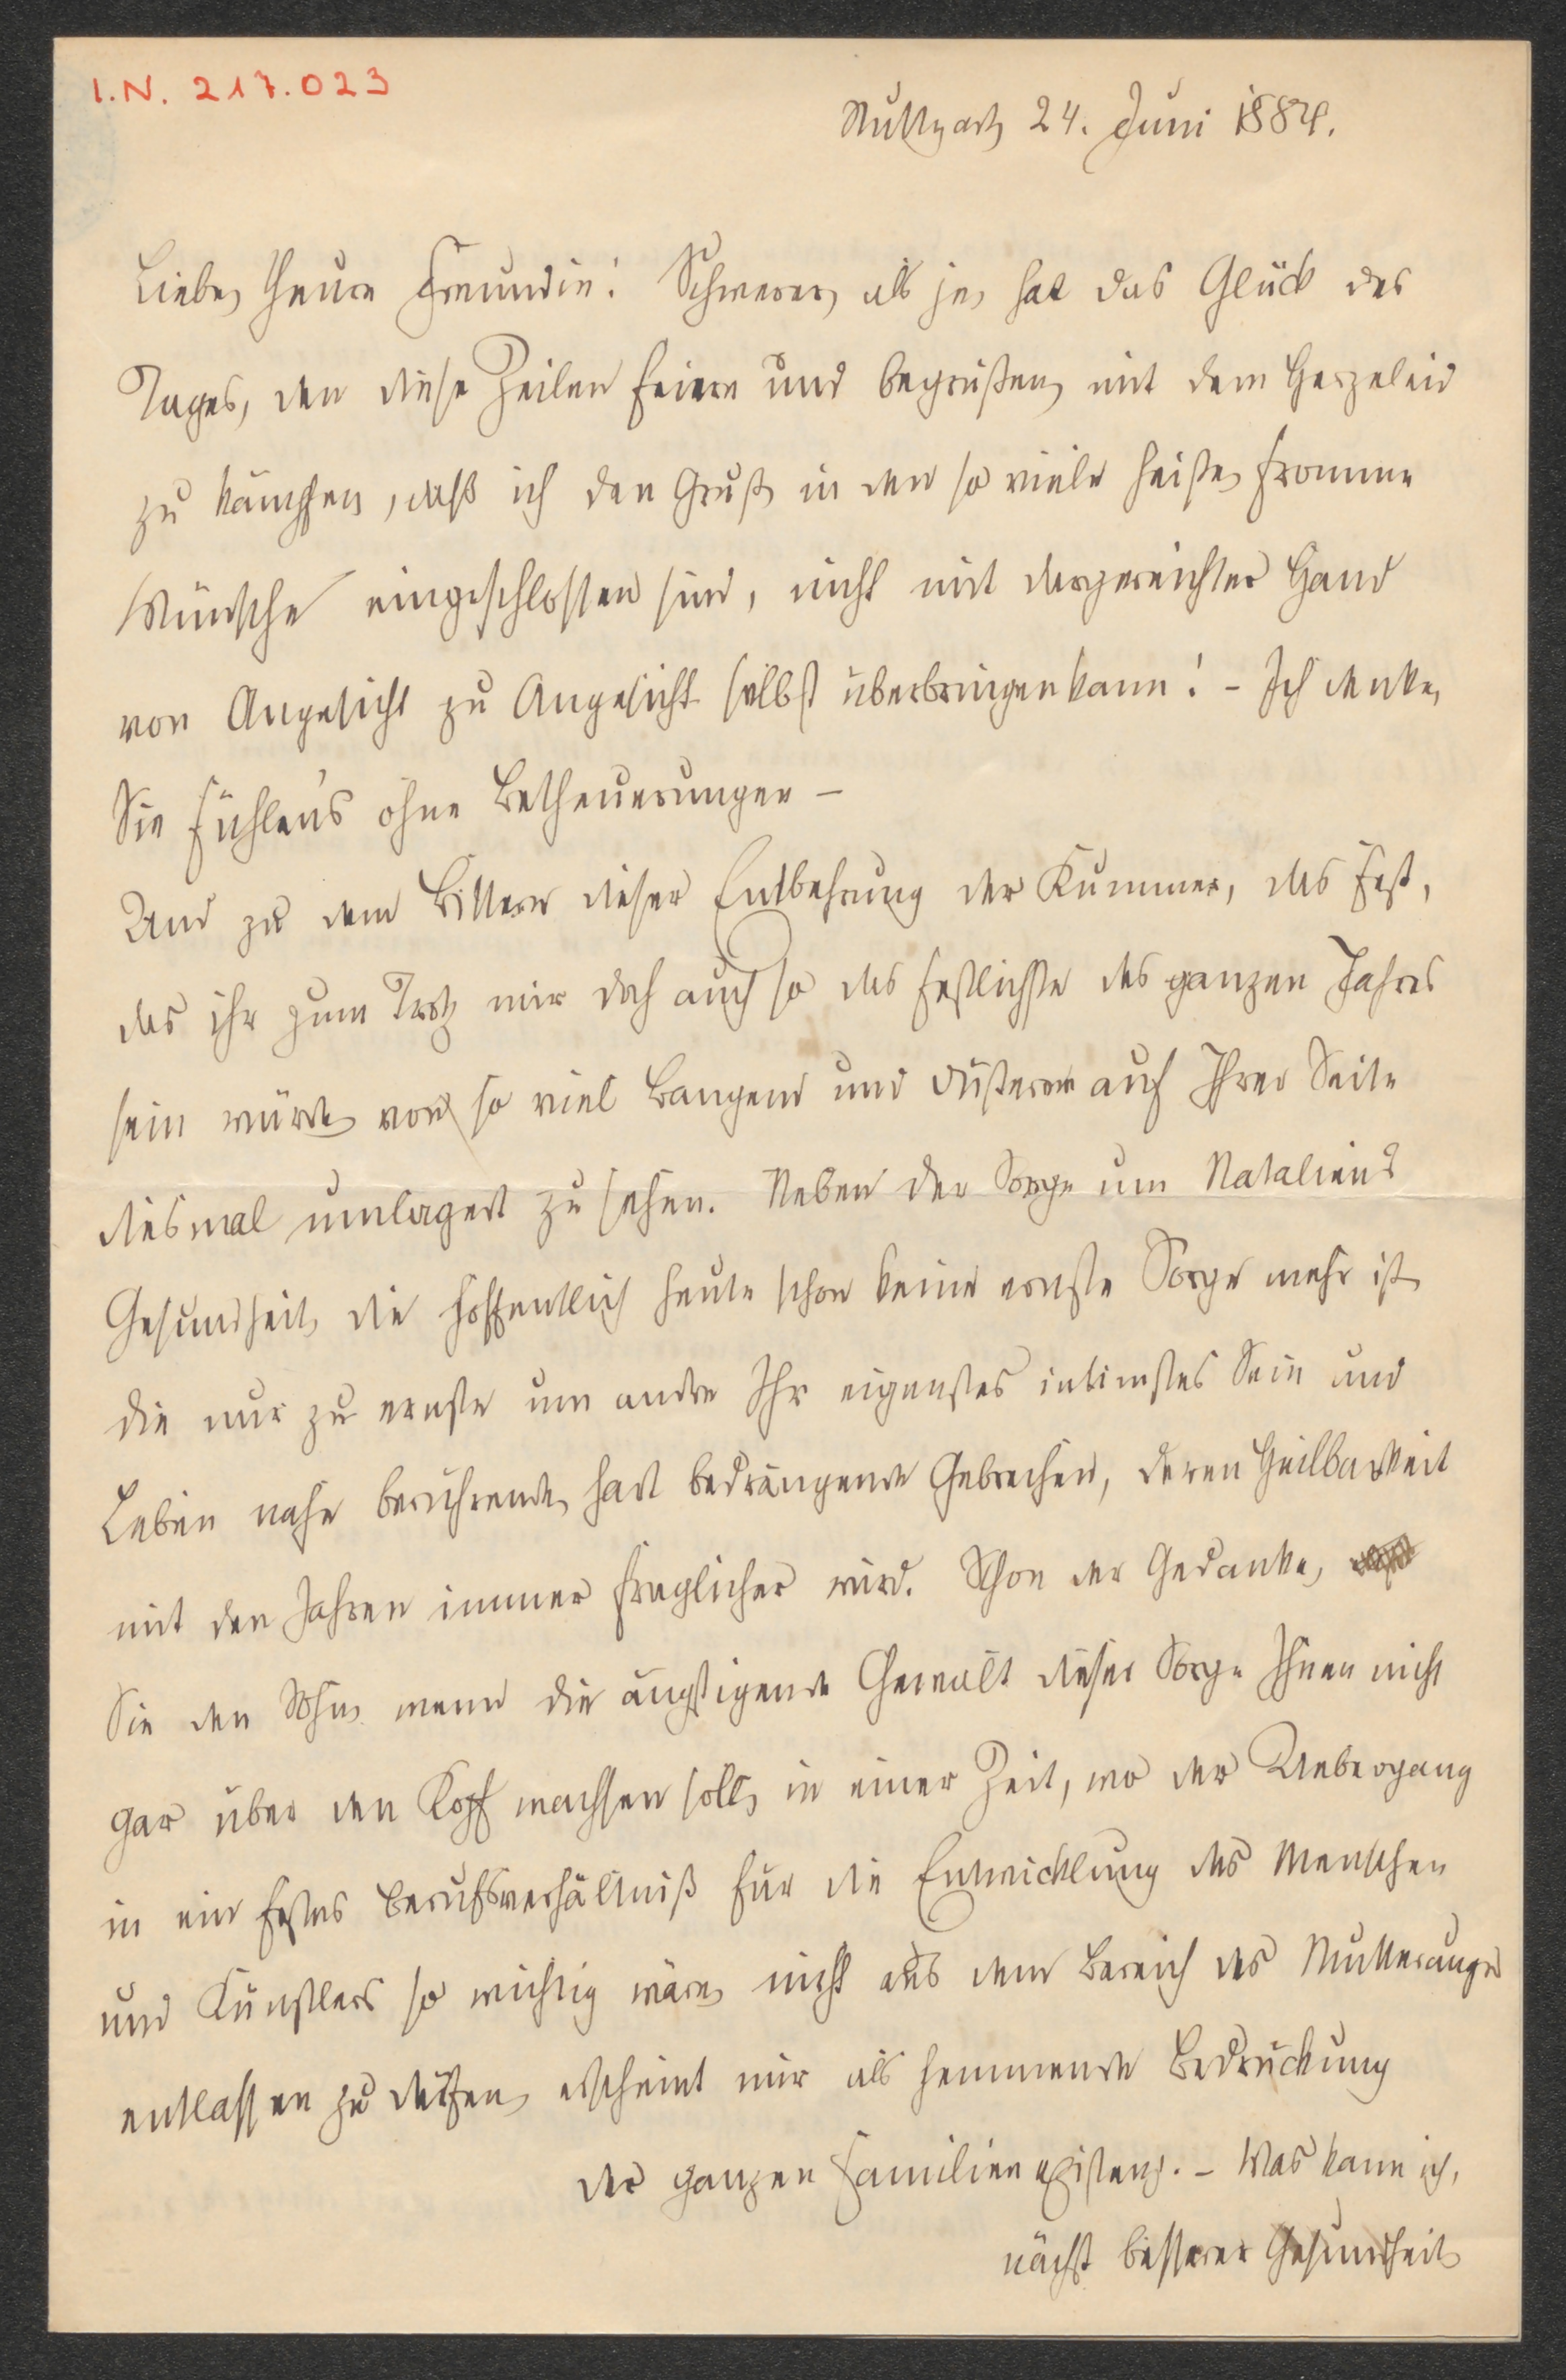 I.N. 217.023
Stuttgart, 24. Juni 1884.
Liebe, theure Freundin! Schwerer, als je, hat das Glück des
Tages, den diese Zeilen feiern und begrüßen, mit dem Herzeleid
zu kämpfen, daß ich den Gruß, in den so viele heiße, fromme
Wünsche eingeschlossen sind, nicht mit dargereichter Hand
von Angesicht zu Angesicht selbst überbringen kann! – Ich denke,
Sie fühlen's ohne Betheuerungen –
Und zu dem Bittern dieser Entbehrung der Kummer, das Fest,
das ihr zum Trotz mir doch auch so das festlichste des ganzen Jahres
sein würde, von so viel Bangem und Düsterem auf Ihrer Seite
diesmal umlagert zu sehen. Neben der Sorge um Nataliens
Gesundheit, die hoffentlich heute schon keine ernste Sorge mehr ist,
die nur zu ernste um andre Ihr eigenstes intimstes Sein und
Leben nahe berührende, hart bedrängende Gebrechen, deren Heilbarkeit
mit den Jahren immer fraglicher wird. Schon der Gedanke,
Sie den Sohn, wenn die ängstigende Gewalt dieser Sorge Ihnen nicht
gar über den Kopf wachsen soll, in einer Zeit, wo der Uebergang
in ein festes Berufsverhältniß für die Entwicklung des Menschen
und Künstlers so wichtig wäre, nicht aus dem Bereich des Mutterauges
entlassen zu dürfen, erscheint mir als hemmende Bedrückung
der ganzen Familienexistenz. – Was kann ich,
nächst besserer Gesundheit,